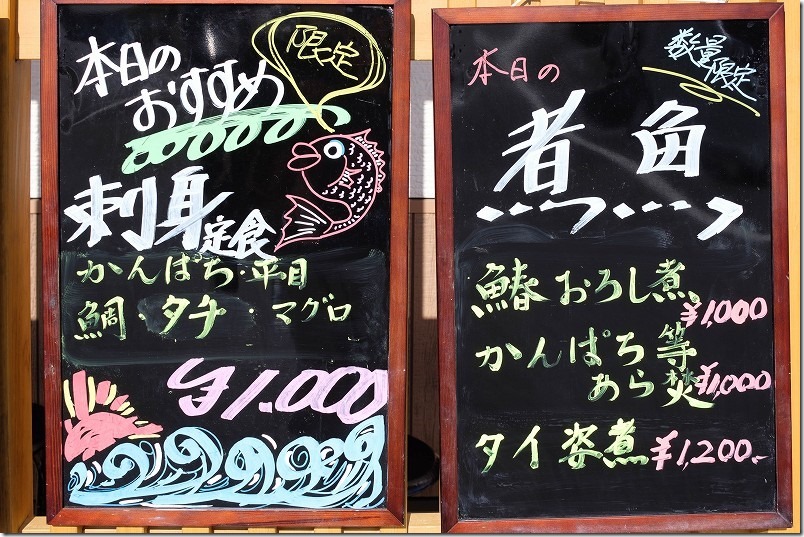 本日の
おすすめ
限定
刺身定食
かんぱち・平目
鯛・タチ・マグロ
¥1.000
本日の
数量
限定
煮魚
鰆おろし煮。
¥1,000
かんぱち等
あら焚¥1,000
タイ姿煮¥1,200.-